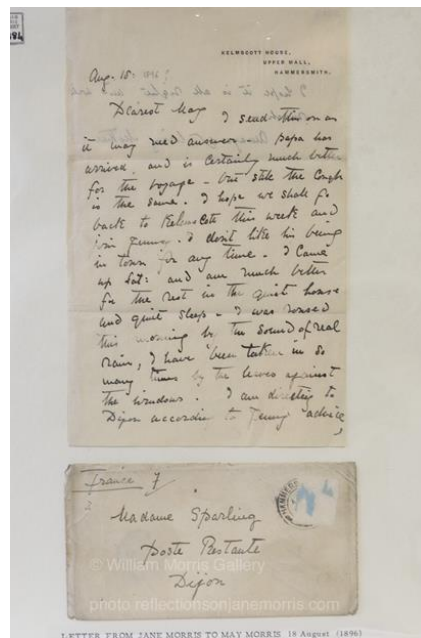 KELMSCOTT HOUSE,
UPPER MALL,
HAMMERSMITH.
Aug. 18.
Dearest May I send this on as
it may need answer. Papa has
arrived, and is certainly much better
for the voyage - but still the Cough
is the same. I hope we shall go
back to Kelmscott this week and
join Jenny. I don't like his being
in town for any time. I came
up Sat: and am much better
for the rest in the quiet house
and quiet sleep - I was roused
this morning by the sound of real
rain, I have been taken in so
many times by the leaves against
the windows. I am directing to
Dijon according to Jenny's advice,
France
Madame Sparling
Poste Restante
Dijon
© William Morris Gallery
photo reflectionsonjanemorris.com
LETTER FROM JANE MORRIS TO MAY MORRIS 18 August (1896)